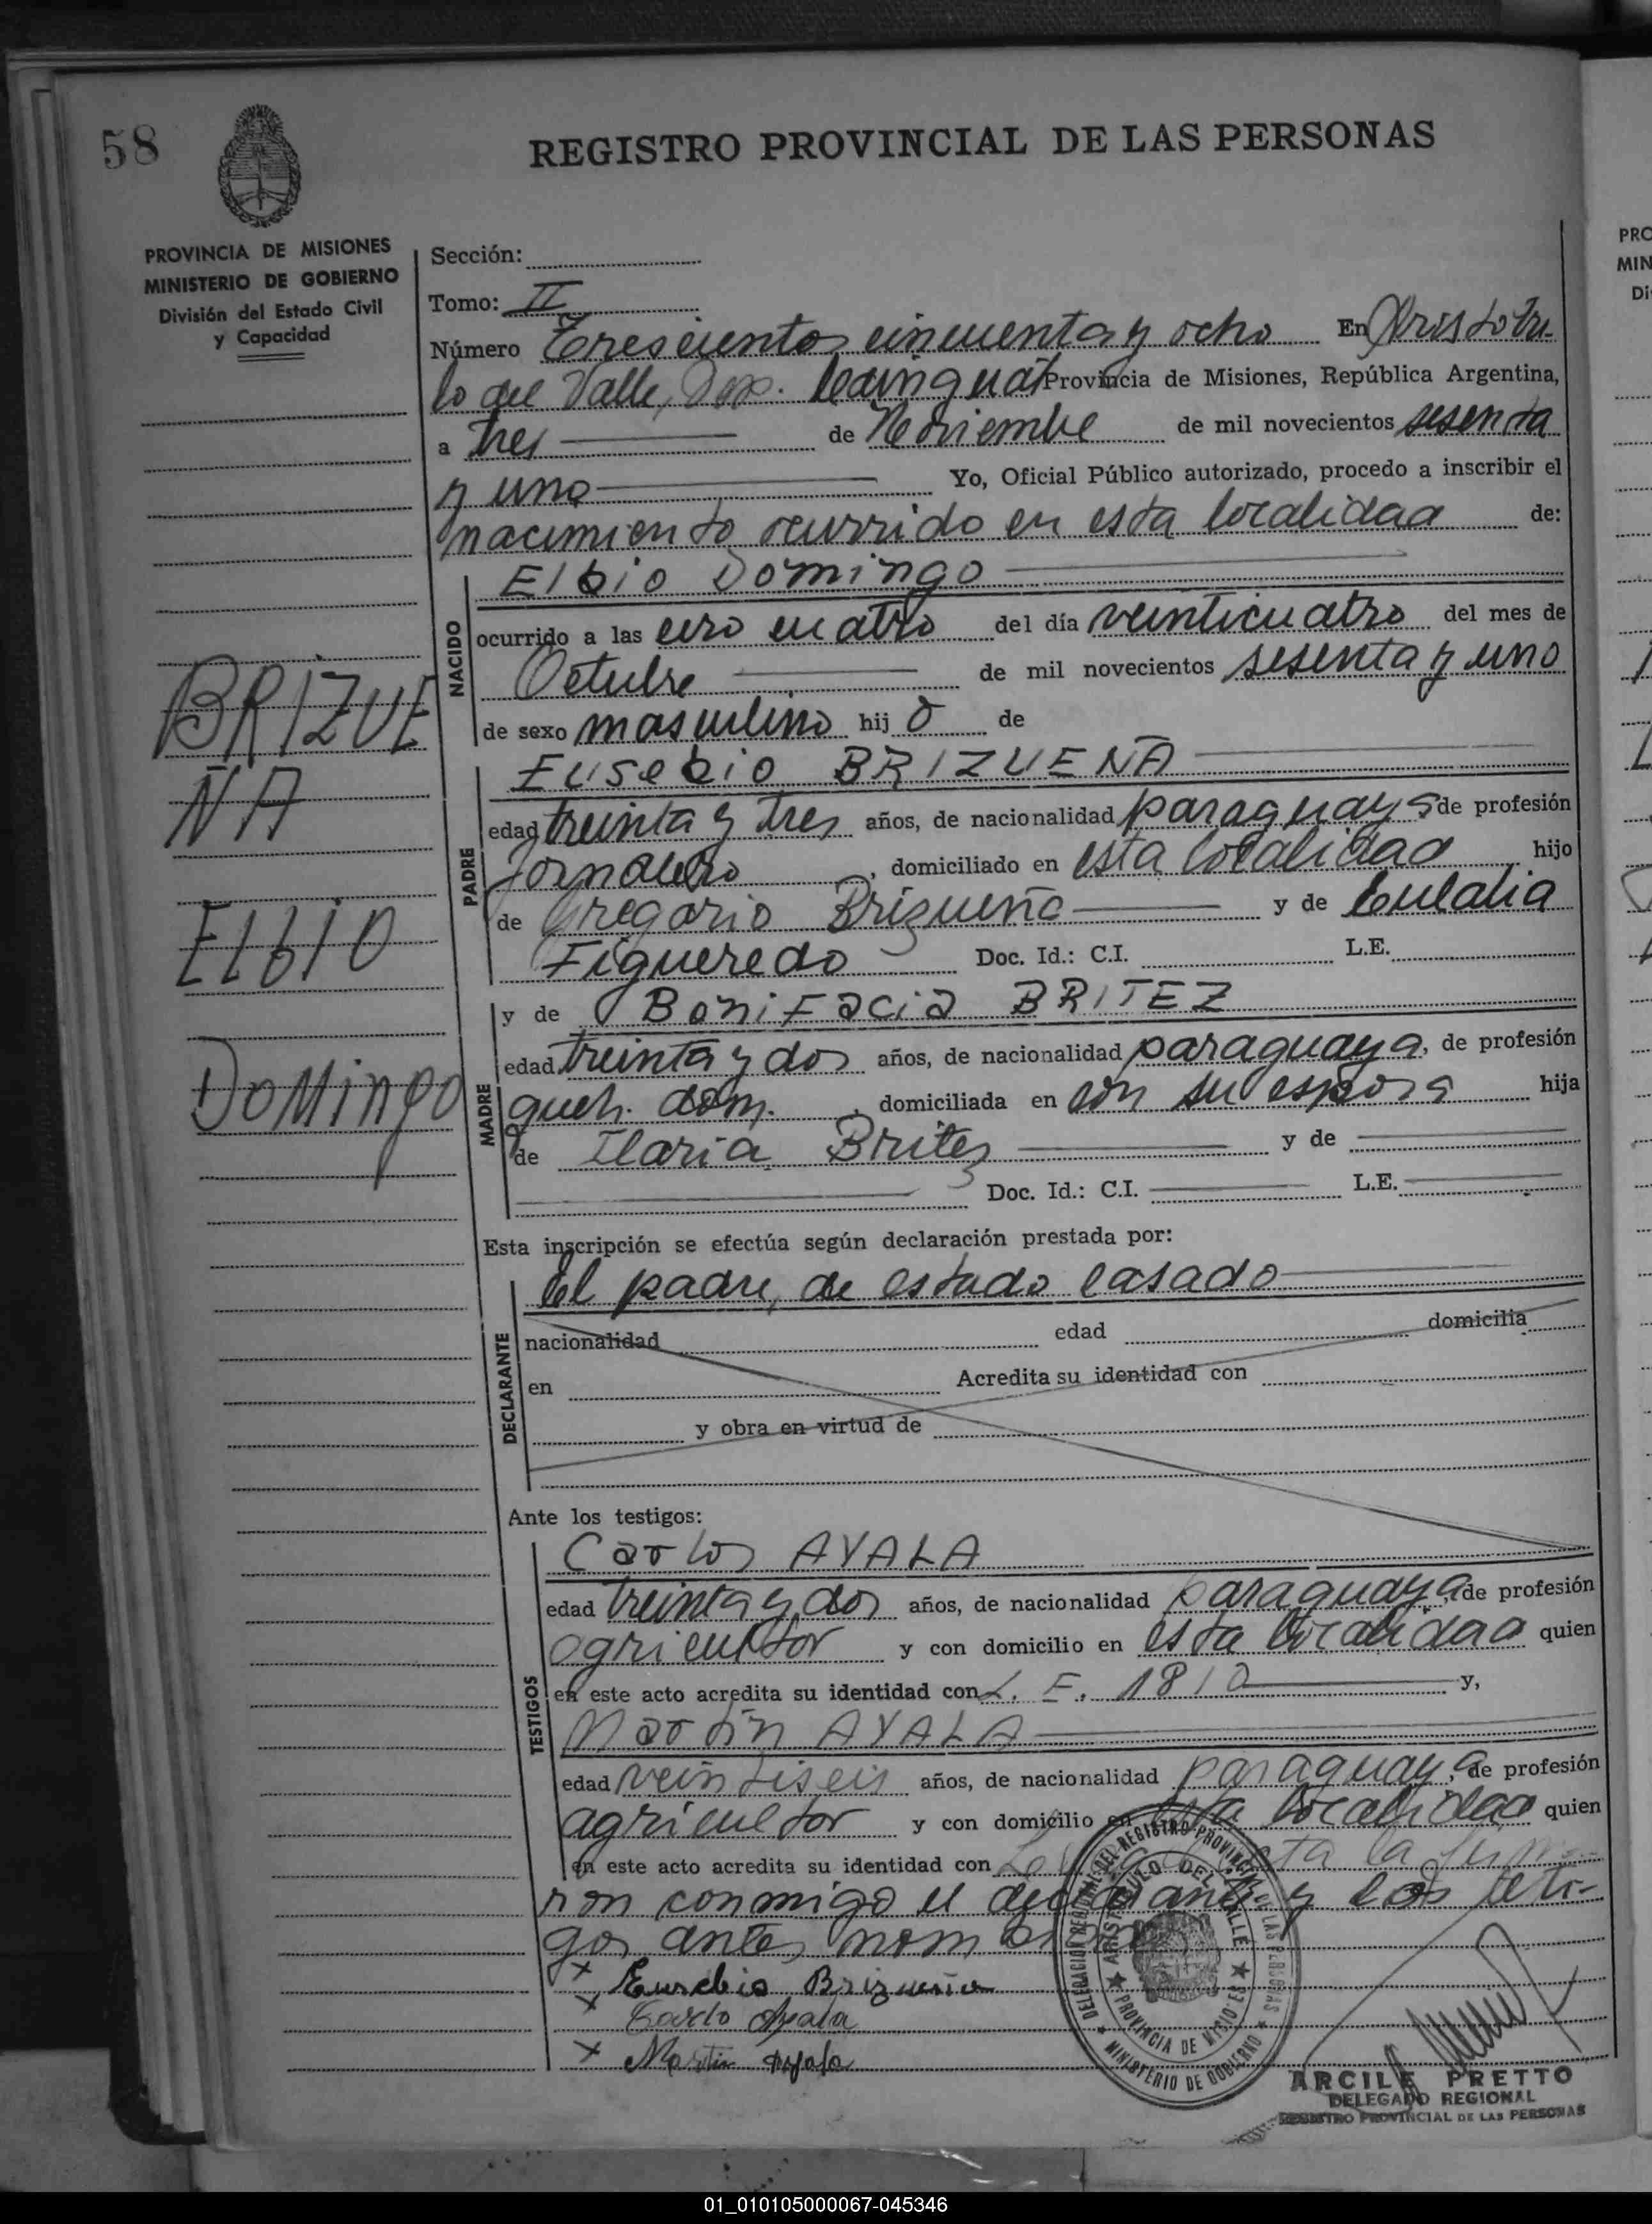 58
REGISTRO PROVINCIAL DE LAS PERSONAS
PROVINCIA DE MISIONES
MINISTERIO DE GOBIERNO
División del Estado Civil
y Capacidad
Sección:
Tomo: II
Número Trescientos cincuenta y ocho En Aristobu-
lo del Valle, Dep. Cainguás Provincia de Misiones, República Argentina,
a tres de Noviembre de mil novecientos sesenta
y uno Yo, Oficial Público autorizado, procedo a inscribir el
nacimiento ocurrido en esta localidad de:
NACIDO
Elbio Domingo
ocurrido a las cero cuatro del día veinticuatro del mes de
Octubre de mil novecientos sesenta y uno
de sexo masculino hij o de
BRIZUE
ÑA
ELBIO
DOMINGO
PADRE
Eusebio BRIZUEÑA
edad treinta y tres años, de nacionalidad paraguaya de profesión
Jornalero, domiciliado en esta localidad hijo
de Gregorio Brizueña y de Eulalia
Figueredo Doc. Id.: C.I. L.E.
MADRE
y de Bonifacia BRITEZ
edad treinta y dos años, de nacionalidad paraguaya, de profesión
queh. dom., domiciliada en con su esposo hija
de Ilaria Britez y de
Doc. Id.: C.I. L.E.
Esta inscripción se efectúa según declaración prestada por:
DECLARANTE
El padre, de estado casado
nacionalidad edad domicilia
en Acredita su identidad con
y obra en virtud de
Ante los testigos:
TESTIGOS
Carlos AYALA
edad treinta y dos años, de nacionalidad paraguaya, de profesión
agricultor y con domicilio en esta localidad quien
en este acto acredita su identidad con L. E. 1810 y,
Martín AYALA
edad veintiseis años, de nacionalidad paraguaya, de profesión
agricultor y con domicilio en esta localidad quien
en este acto acredita su identidad con la
ron conmigo el declarante y los testi-
gos antes nombrados
x Eusebio Brizueña
x Carlo Ayala
x Martin Ayala
DELEGACION REGIONAL DEL REGISTRO PROVINCIAL DE LAS PERSONAS
ARISTOBULO DEL VALLE
PROVINCIA DE MISIONES
MINISTERIO DE GOBIERNO
ARCILE PRETTO
DELEGADO REGIONAL
REGISTRO PROVINCIAL DE LAS PERSONAS
PRO
MIN
Di
01_010105000067-045346